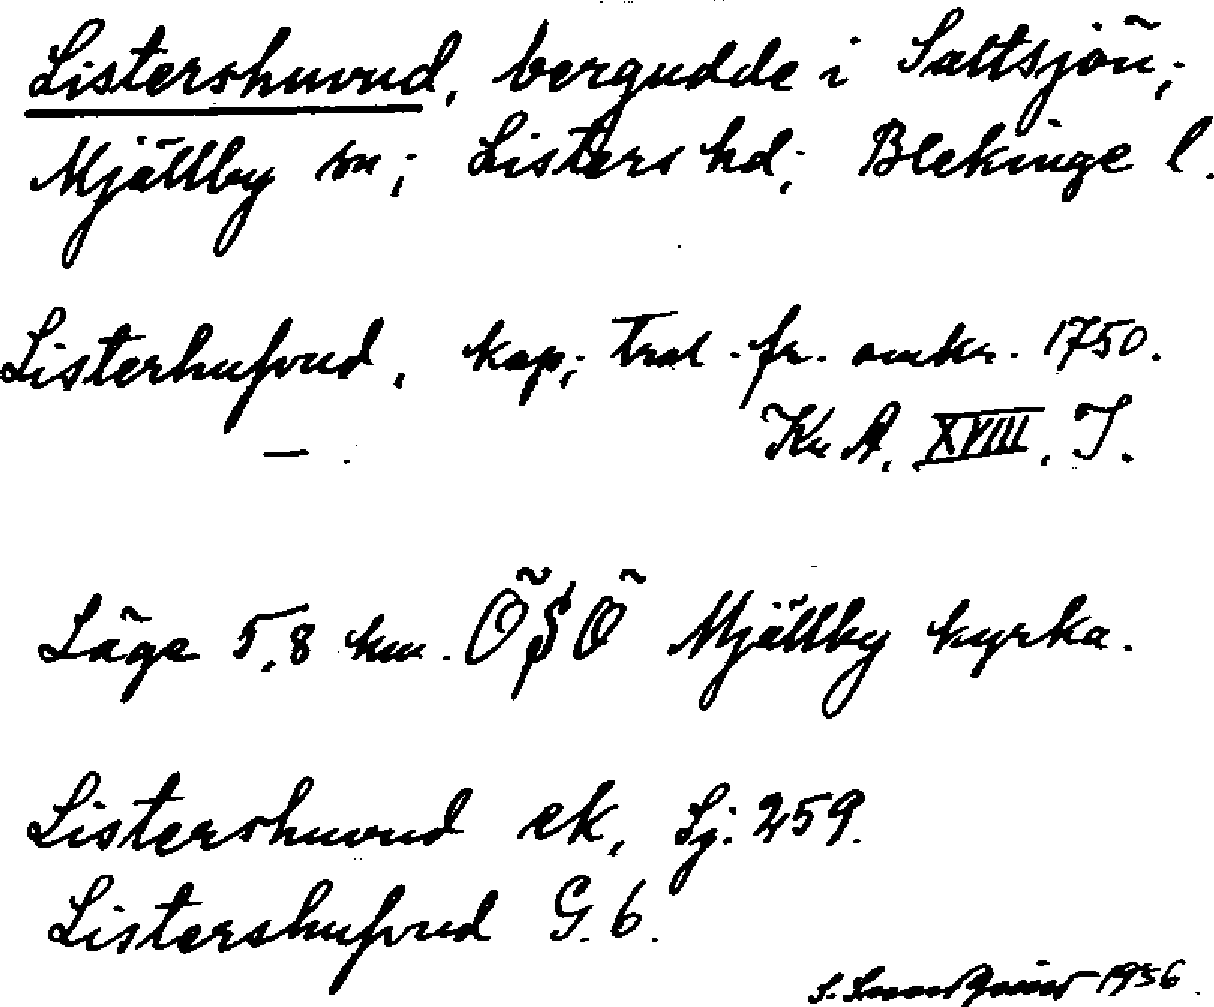 Listershuvud, bergudde i Saltsjön;
Mjällby sn; Listers hd; Blekinge l.
Listerhufvud, kap; Trol. fr. omkr. 1750.
Kr A. XVIII. I.
—
Läge 5,8 km. ÖSÖ Mjällby kyrka.
Listershuvud ek, Sj. 259.
Listershufvud G. 6.
S. 1956